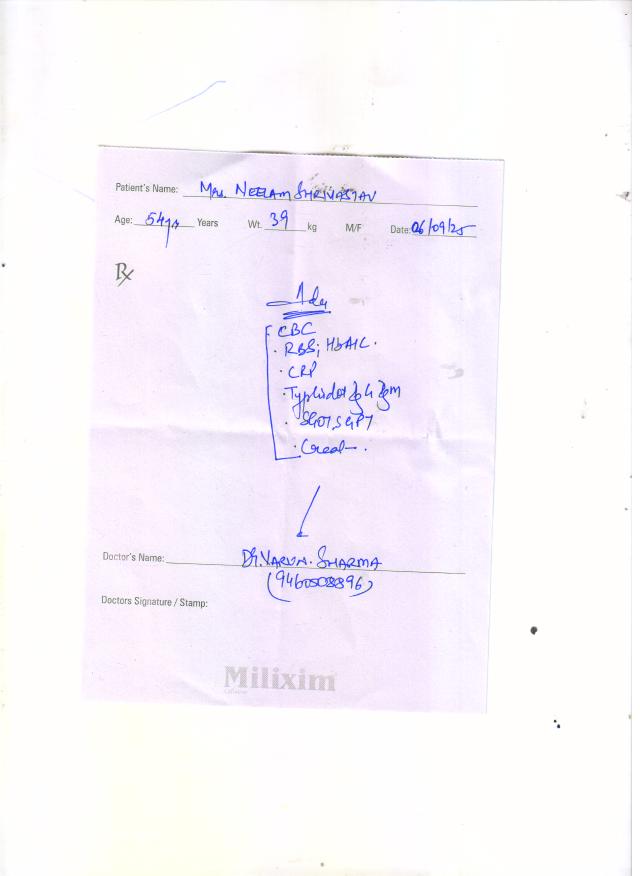 Patient's Name: Mrs. NEELAM SHRIVASTAV
Age: 54yr Years Wt. 39 kg M/F Date: 06/09/25
Rx
Adv
CBC
· RBS; HbA1C.
· CRP
· Typhidot IgG IgM
· SGOT, SGPT
· Creat.
Doctor's Name: Dr. VARUN. SHARMA
(9460508896)
Doctors Signature / Stamp:
Milixim
Cefixime